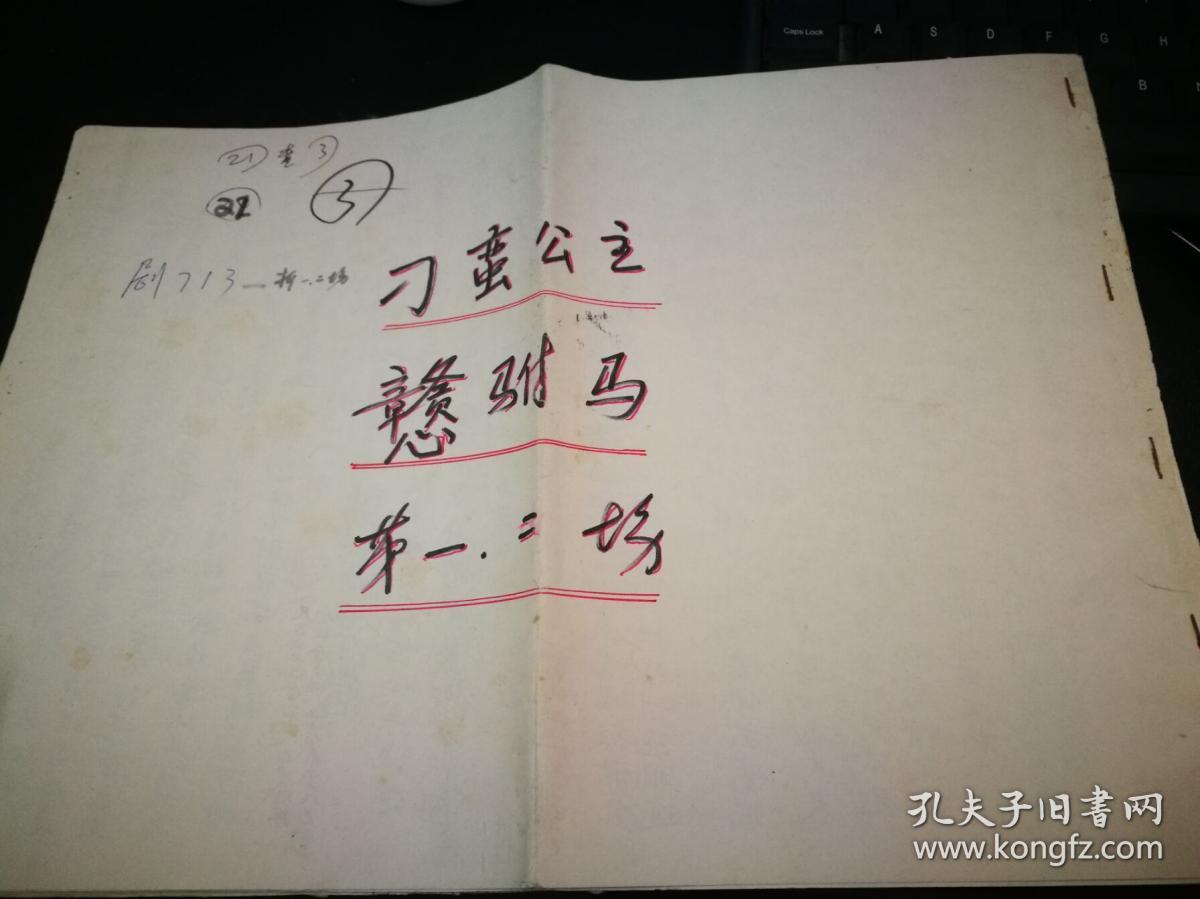 Caps Lock A S D F G H
B N
㉑ 查 ③
22 ③
剧713 一 折一.二场
刁蛮公主
戆驸马
第一.二场
孔夫子旧书网
www.kongfz.com